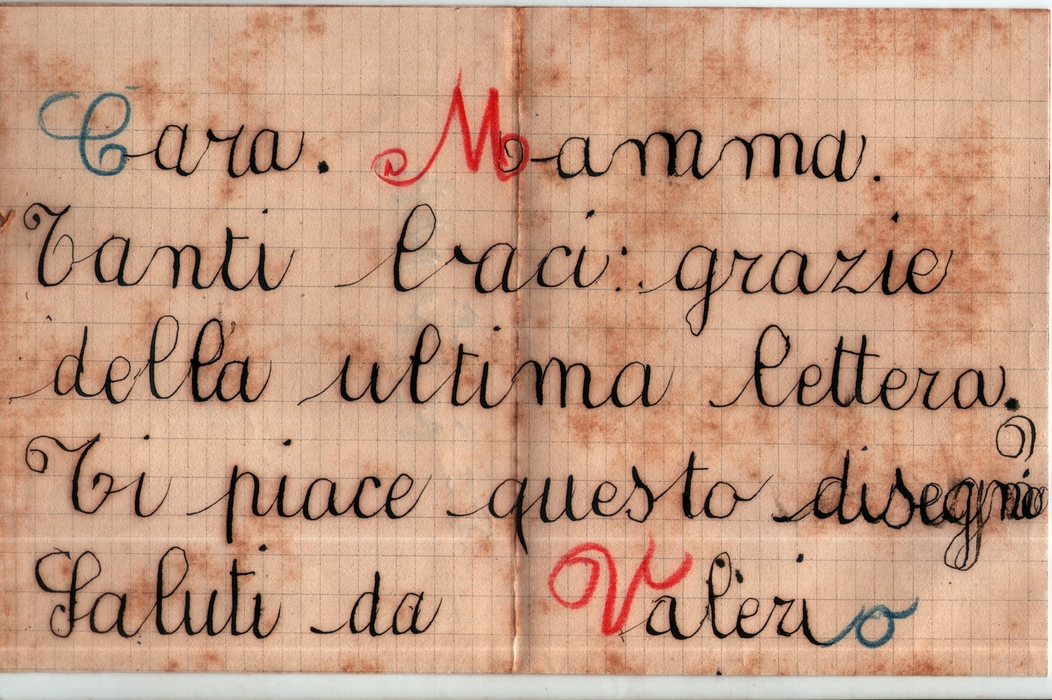 Cara. Mamma.
Tanti baci: grazie
della ultima lettera.
Ti piace questo disegnio?
Saluti da Valerio